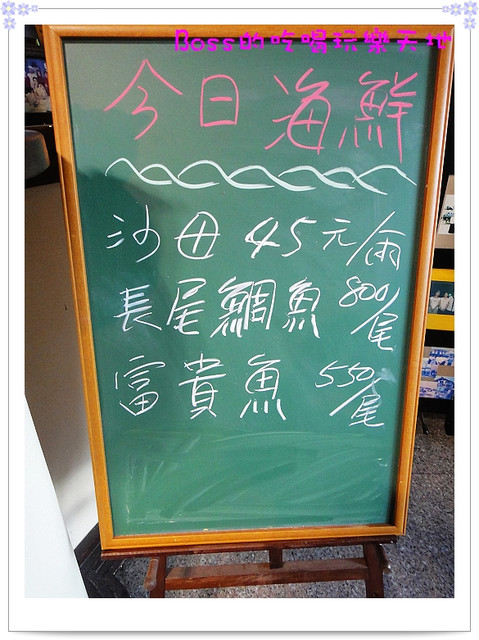 Boss的吃喝玩樂天地
今日海鮮
沙母 45元/兩
長尾鯛魚 800/尾
富貴魚 550/尾